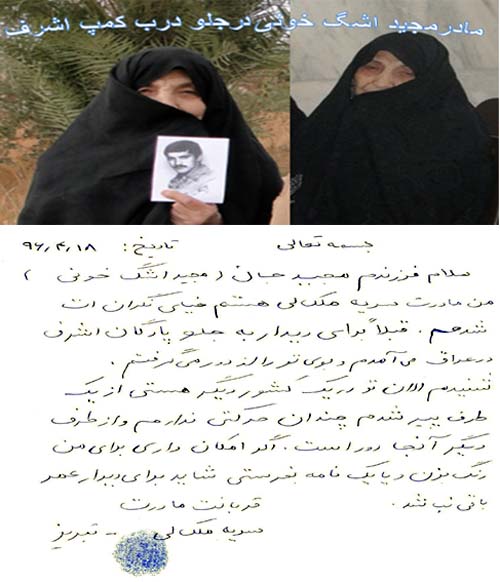 مادر مجید اشگ خونی در جلو درب کمپ اشرف
بسمه تعالی تاریخ: ۹۶,۴,۱۸
سلام فرزندم مجید جان (مجید اشگ خونی)
من مادرت سریه ملکالی هستم خیلی نگران ات
شدم. قبلاً برای دیدار به جلو پادگان اشرف
در عراق می آمدم و بوی تو را از دور می گرفتم.
شنیدم الان تو در یک کشور دیگر هستی از یک
طرف پیر شدم چندان حرکتی ندارم و از طرف
دیگر آنجا دور است. اگر امکان داری برای من
زنگ بزن و یا یک نامه بفرستی شاید برای دیدار عمر
باقی نباشد.
قربانت مادرت
سریه ملکالی - تبریز